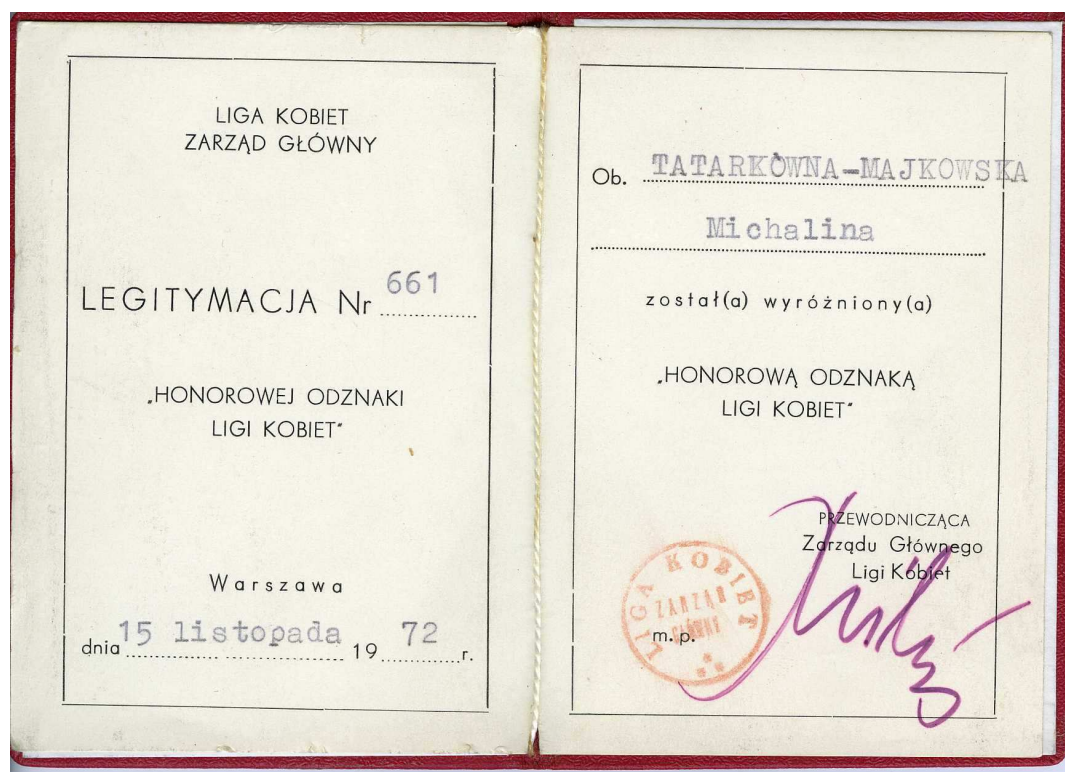 LIGA KOBIET
ZARZĄD GŁÓWNY
LEGITYMACJA Nr 661
„HONOROWEJ ODZNAKI
LIGI KOBIET"
Warszawa
dnia 15 listopada 1972 r.
Ob. TATARKÓWNA-MAJKOWSKA
Michalina
został(a) wyróżniony(a)
„HONOROWĄ ODZNAKĄ
LIGI KOBIET"
PRZEWODNICZĄCA
Zarządu Głównego
Ligi Kobiet
m.p.
LIGA KOBIET
ZARZĄD
GŁÓWNY